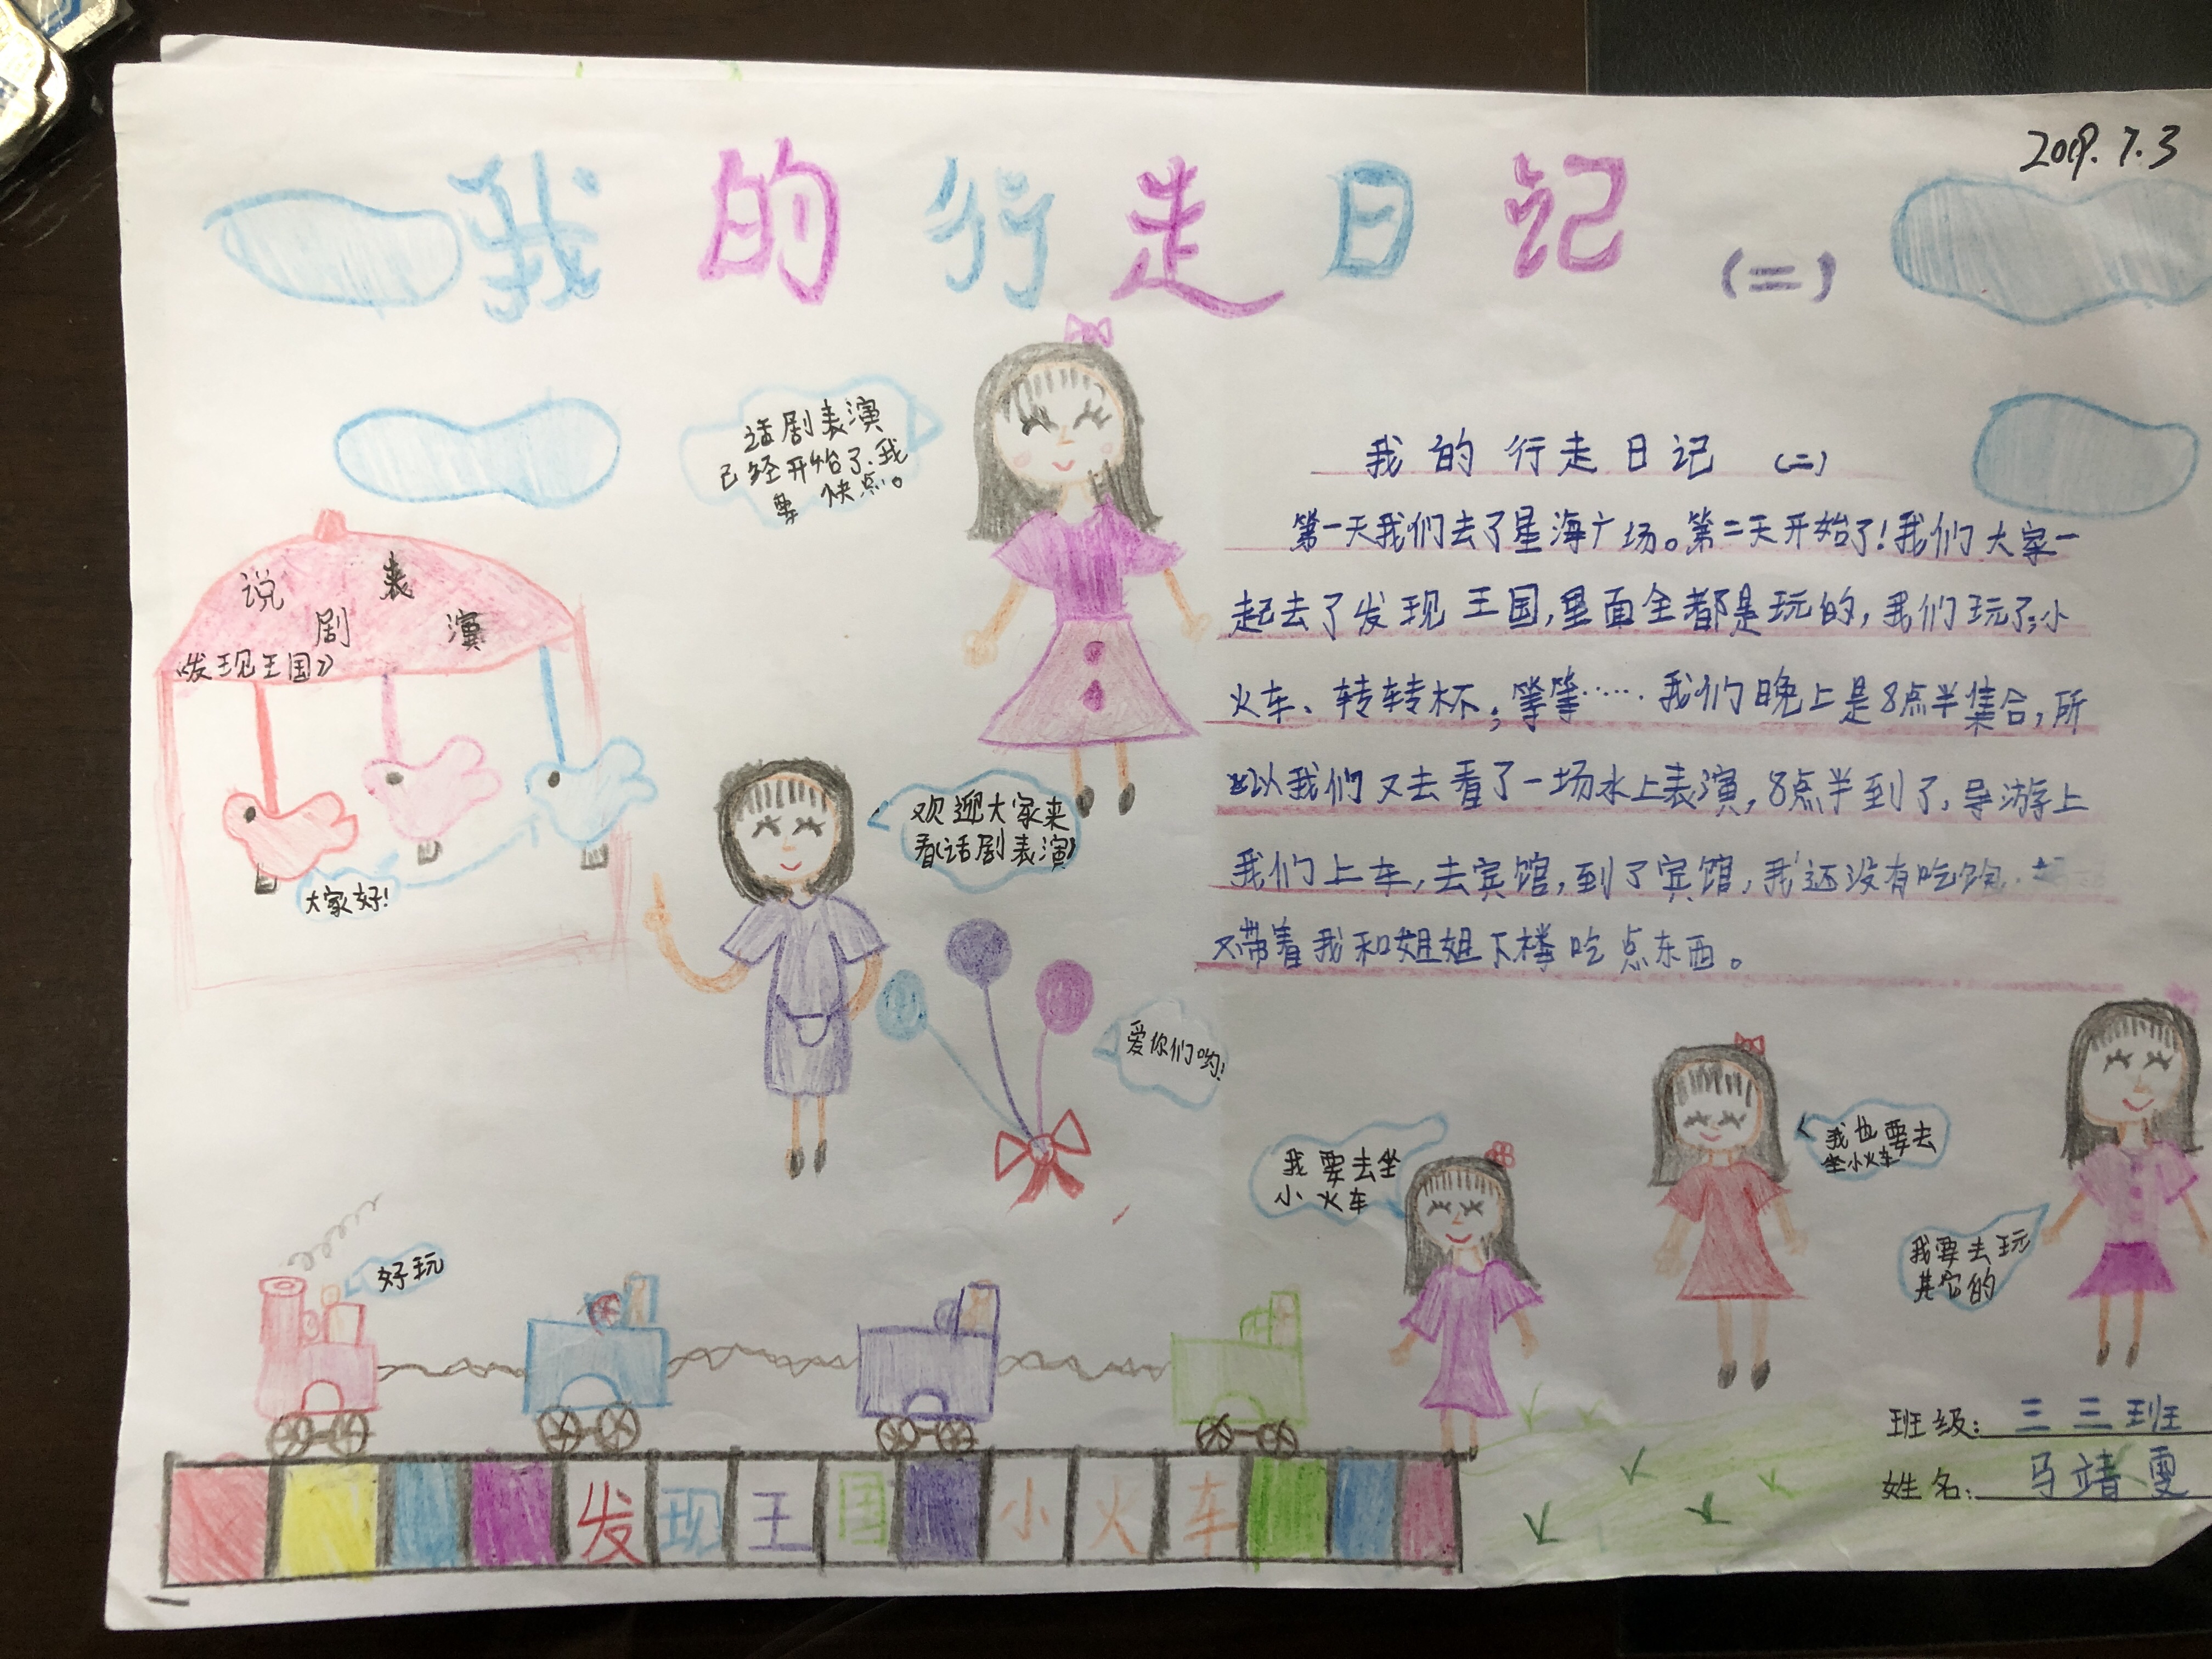 2019.7.3
我的行走日记
(二)
话剧表演
已经开始了.我
要 快点。
说剧表演
《发现王国》
大家好!
欢迎大家来
看(话剧表演)
爱你们哟!
我的行走日记 (二)
第一天我们去了星海广场。第二天开始了!我们大家一
起去了发现王国,里面全都是玩的,我们玩了:小
火车、转转杯,等等……我们晚上是8点半集合,所
以我们又去看了一场水上表演,8点半到了,导游上
我们上车,去宾馆,到了宾馆,我还没有吃饱.
又带着我和姐姐下楼吃点东西。
我要去坐
小火车
我也要去
坐小火车
我要去玩
其它的
好玩
发现王国 小火车
班级: 三三班
姓名: 马靖雯